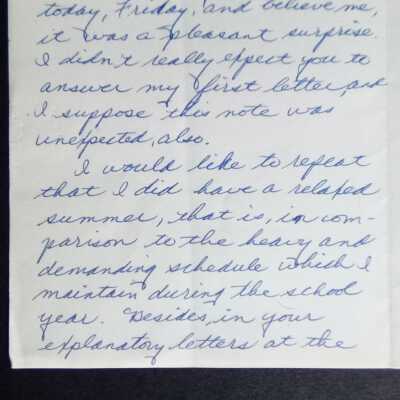 today, Friday, and believe me,
it was a pleasant surprise.
I didn't really expect you to
answer my first letter, and
I suppose this note was
unexpected, also.
I would like to repeat
that I did have a relaxed
summer, that is, in com-
parison to the heavy and
demanding schedule which I
maintain during the school
year. Besides, in your
explanatory letters at the